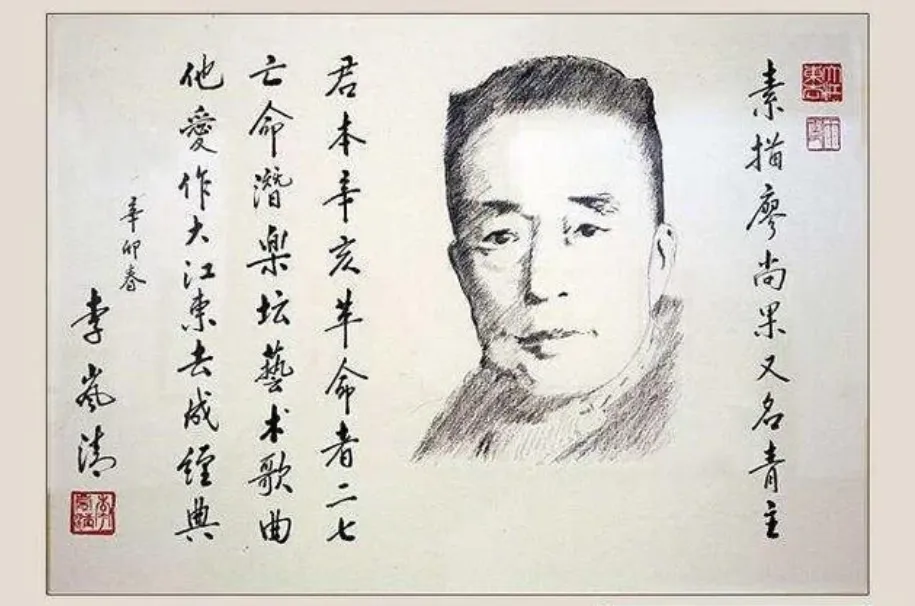 大江東去
素描廖尚果又名青主
君本辛亥革命者二七
亡命潛楽坛藝术歌曲
他愛作大江東去成經典
辛卯春
李岚清